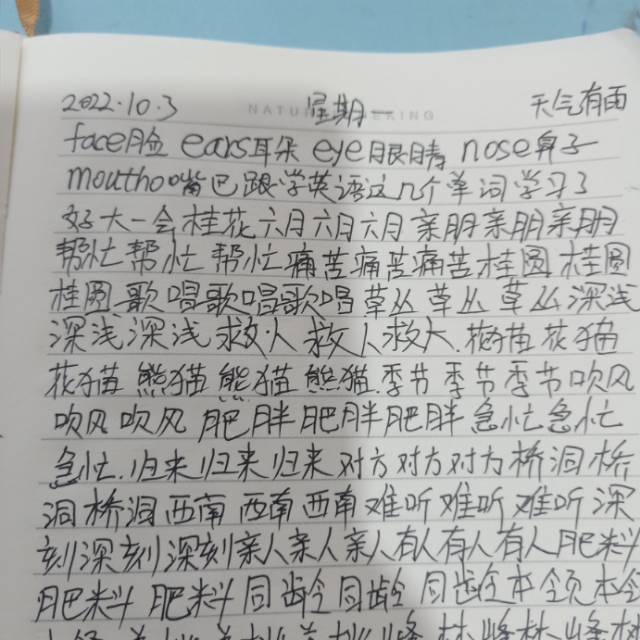 2022.10.3 星期一 天气有雨
face脸 ears耳朵 eye眼睛 nose鼻子
mouth嘴巴跟学英语这几个单词学习了
好大一会桂花六月六月六月亲朋亲朋亲朋
帮忙帮忙帮忙痛苦痛苦痛苦桂圆桂圆
桂圆歌唱歌唱歌唱草丛草丛草丛深浅
深浅深浅救人救人救人.花猫花猫
花猫熊猫熊猫熊猫.季节季节季节吹风
吹风吹风肥胖肥胖肥胖急忙急忙
急忙.归来归来归来对方对方对方桥洞桥
洞桥洞西南西南西南难听难听难听深
刻深刻深刻亲人亲人亲人有人有人有人肥料
肥料肥料同龄同龄同龄本领本领